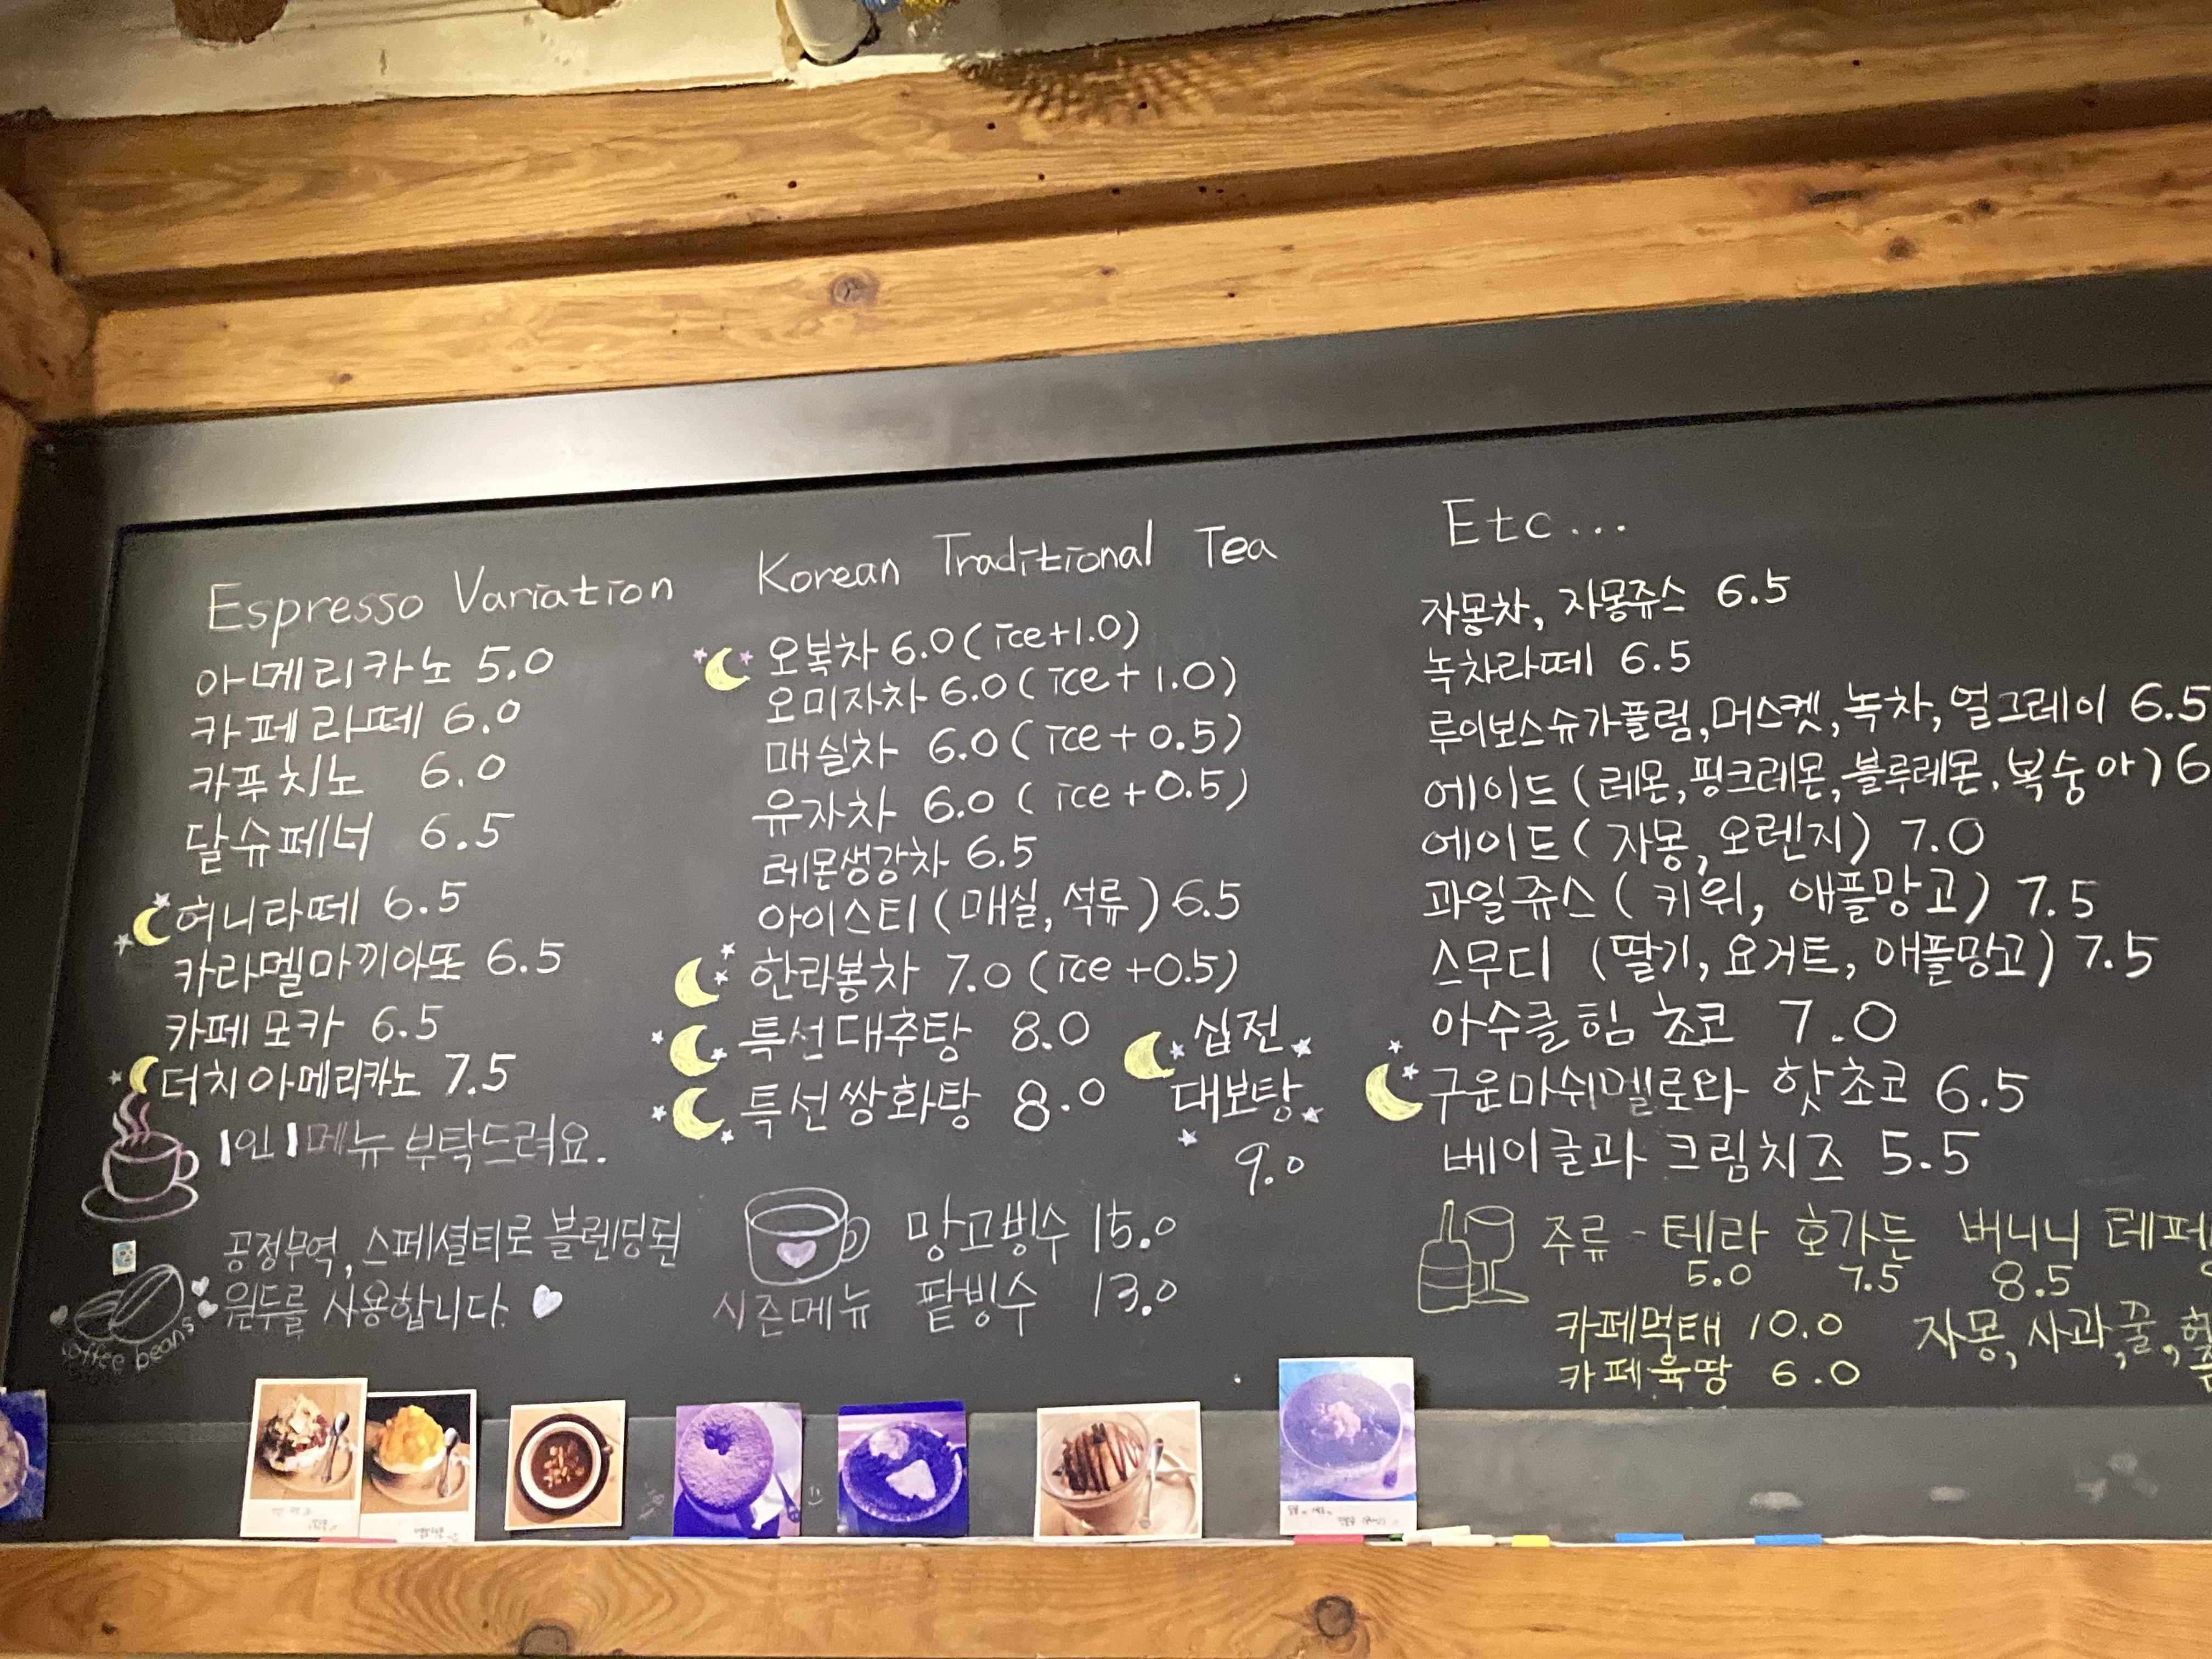 Espresso Variation
아메리카노 5.0
카페라떼 6.0
카푸치노 6.0
달슈페너 6.5
허니라떼 6.5
카라멜마끼아또 6.5
카페모카 6.5
더치아메리카노 7.5
1인 1메뉴 부탁드려요.
공정무역, 스페셜티로 블렌딩된
원두를 사용합니다.
coffee beans
Korean Traditional Tea
오복차 6.0 (ice+1.0)
오미자차 6.0 (ice+1.0)
매실차 6.0 (ice+0.5)
유자차 6.0 (ice+0.5)
레몬생강차 6.5
아이스티 (매실, 석류) 6.5
한라봉차 7.0 (ice+0.5)
특선대추탕 8.0
특선쌍화탕 8.0
십전
대보탕
9.0
망고빙수 15.0
시즌메뉴 팥빙수 13.0
Etc...
자몽차, 자몽쥬스 6.5
녹차라떼 6.5
루이보스슈가플럼, 머스켓, 녹차, 얼그레이 6.5
에이드 (레몬, 핑크레몬, 블루레몬, 복숭아) 6
에이드 (자몽, 오렌지) 7.0
과일쥬스 (키위, 애플망고) 7.5
스무디 (딸기, 요거트, 애플망고) 7.5
아수클림 초코 7.0
구운마쉬멜로와 핫초코 6.5
베이글과 크림치즈 5.5
주류 - 테라 호가든 버니니 테페
5.0 7.5 8.5
카페먹태 10.0 자몽, 사과, 귤,
카페육땅 6.0